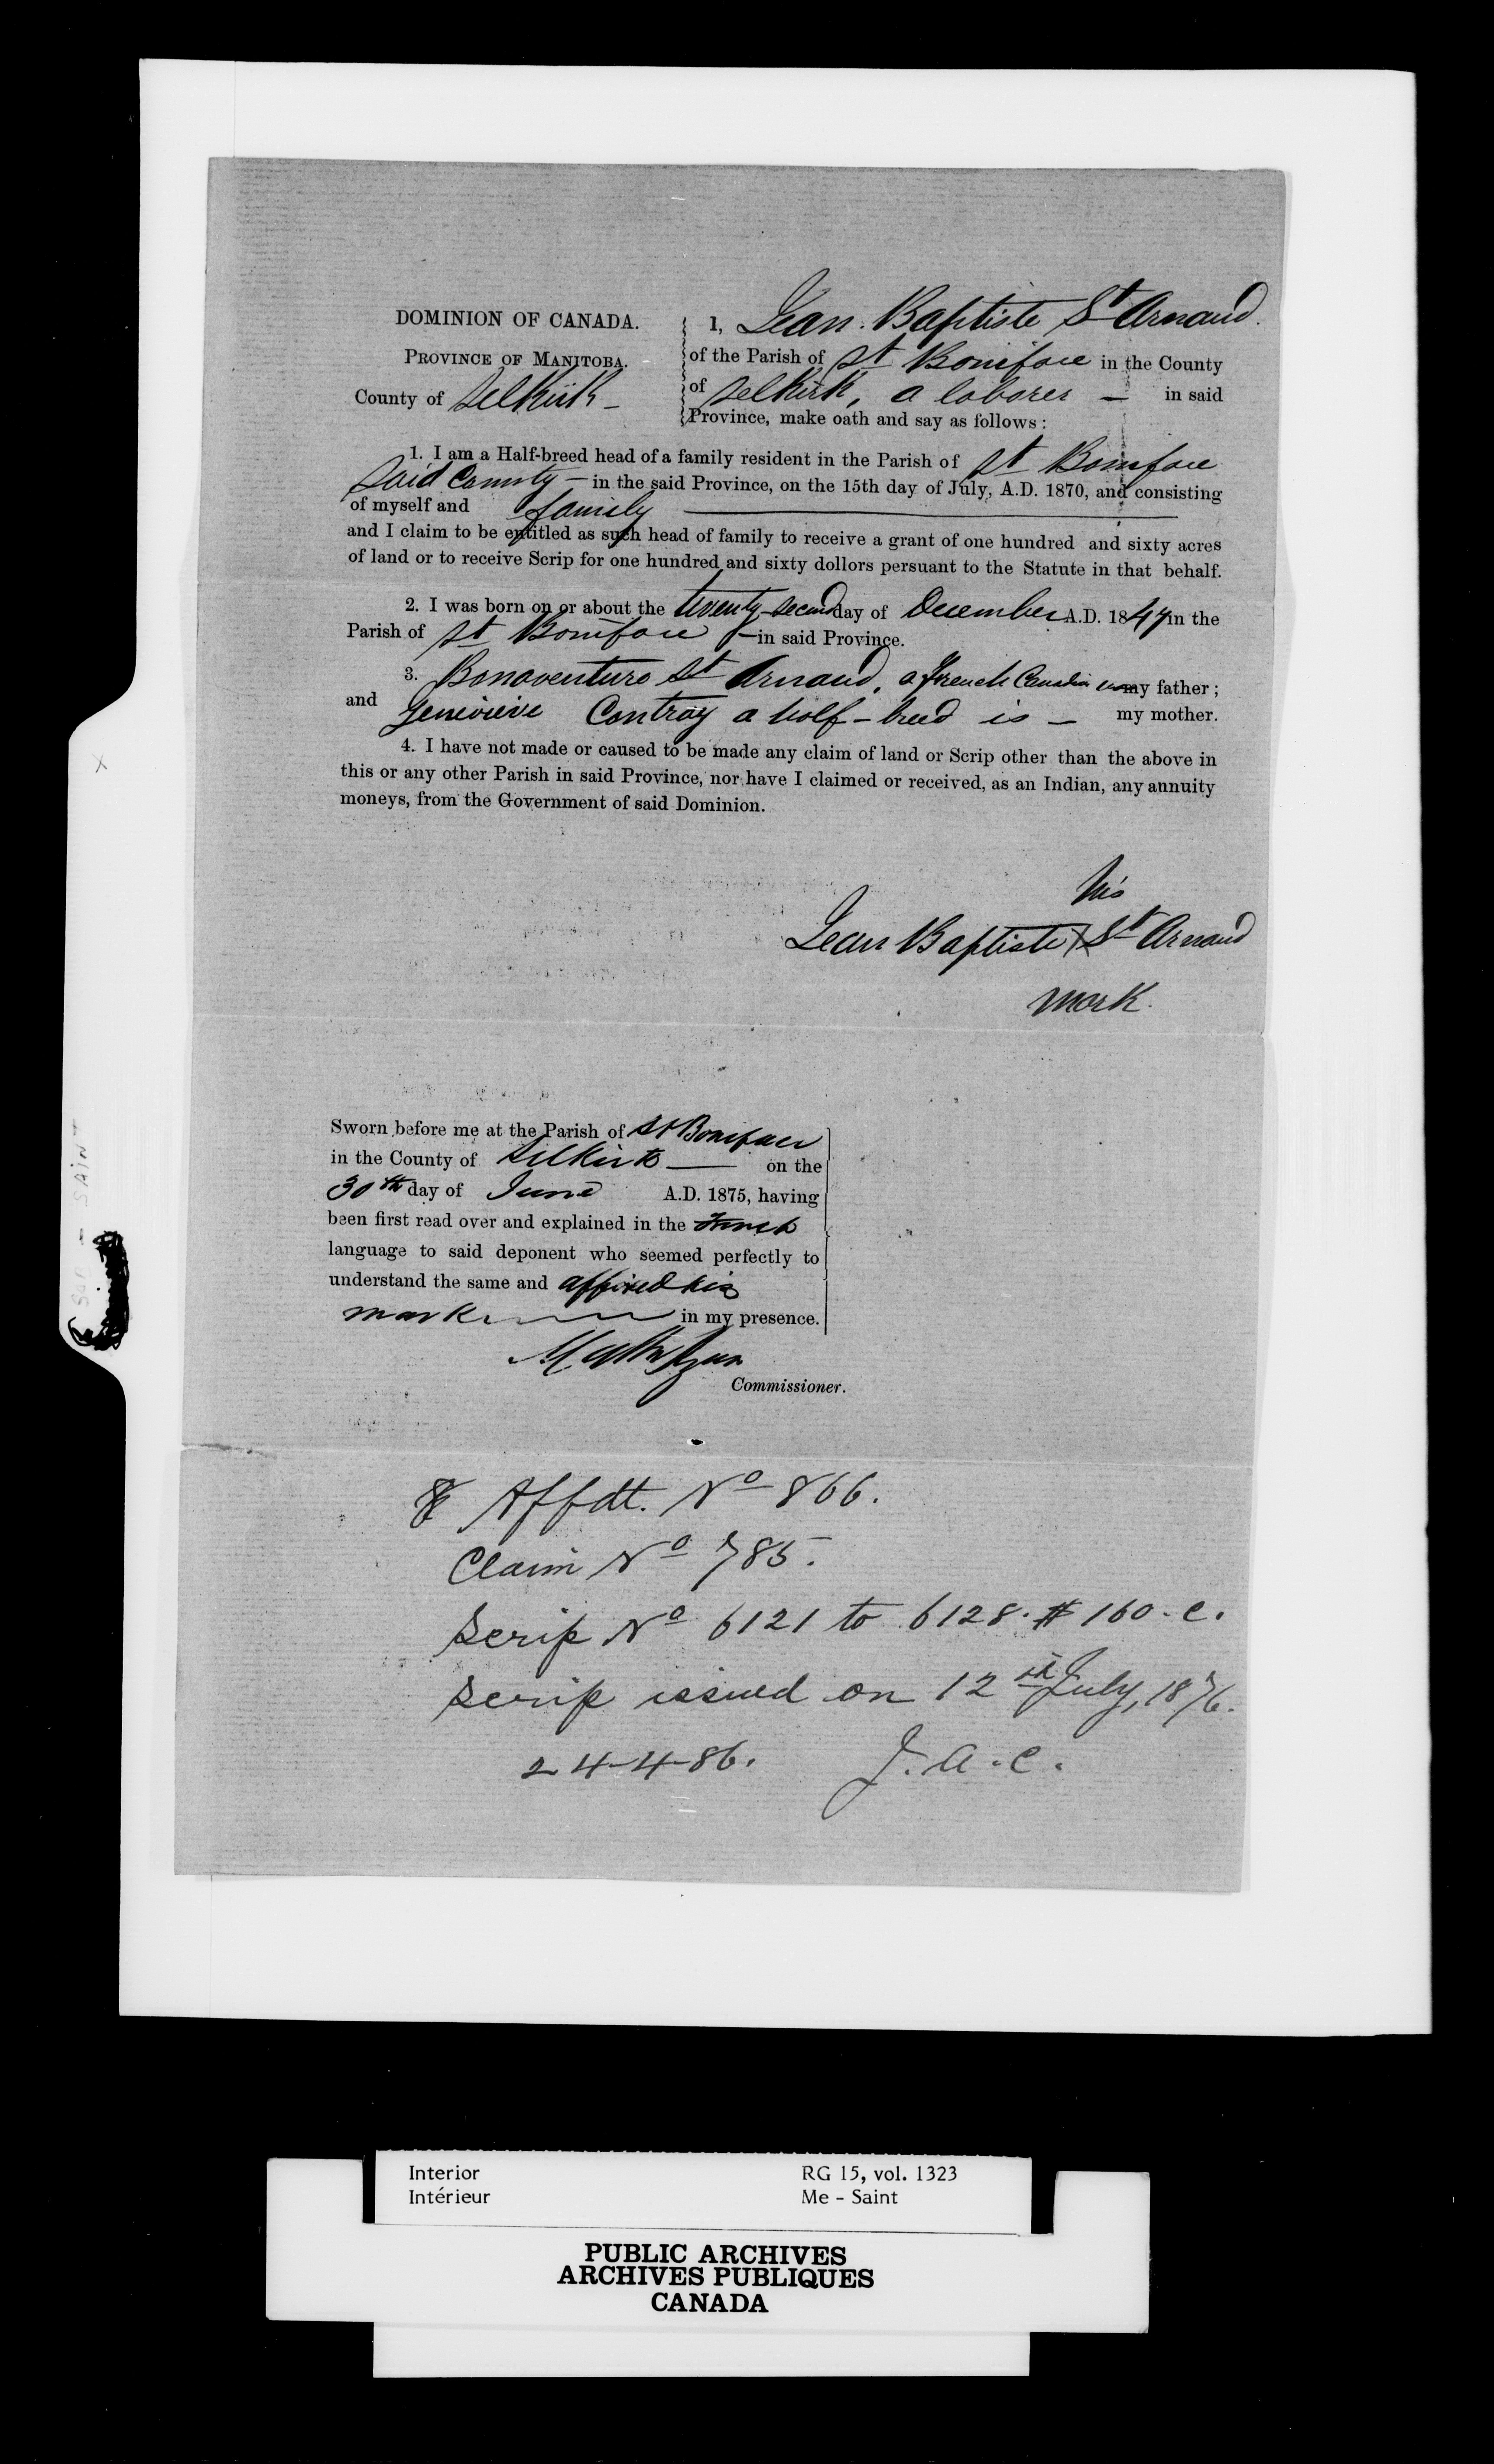 DOMINION OF CANADA.
PROVINCE OF MANITOBA.
County of Selkirk
I, Jean Baptiste St Arnaud
of the Parish of St Boniface in the County
of Selkirk, a laborer — in said
Province, make oath and say as follows:
1. I am a Half-breed head of a family resident in the Parish of St Boniface
said County — in the said Province, on the 15th day of July, A.D. 1870, and consisting
of myself and family
and I claim to be entitled as such head of family to receive a grant of one hundred and sixty acres
of land or to receive Scrip for one hundred and sixty dollors persuant to the Statute in that behalf.
2. I was born on or about the twenty second day of December A.D. 1847 in the
Parish of St Boniface — in said Province.
3. Bonaventure St Arnaud, a French Canadian my father;
and Genevieve Contray a half-breed is — my mother.
4. I have not made or caused to be made any claim of land or Scrip other than the above in
this or any other Parish in said Province, nor have I claimed or received, as an Indian, any annuity
moneys, from the Government of said Dominion.
his
Jean Baptiste X St Arnaud
mark.
Sworn before me at the Parish of St Boniface
in the County of Selkirk — on the
30th day of June A.D. 1875, having
been first read over and explained in the French
language to said deponent who seemed perfectly to
understand the same and affixed his
mark in my presence.
Commissioner.
Affdt. No 866.
Claim No 785.
Scrip No 6121 to 6128. $160.c.
Scrip issued on 12th July, 1876.
24-4-86. J.A.C.
SAINT
Interior
Intérieur
RG 15, vol. 1323
Me - Saint
PUBLIC ARCHIVES
ARCHIVES PUBLIQUES
CANADA